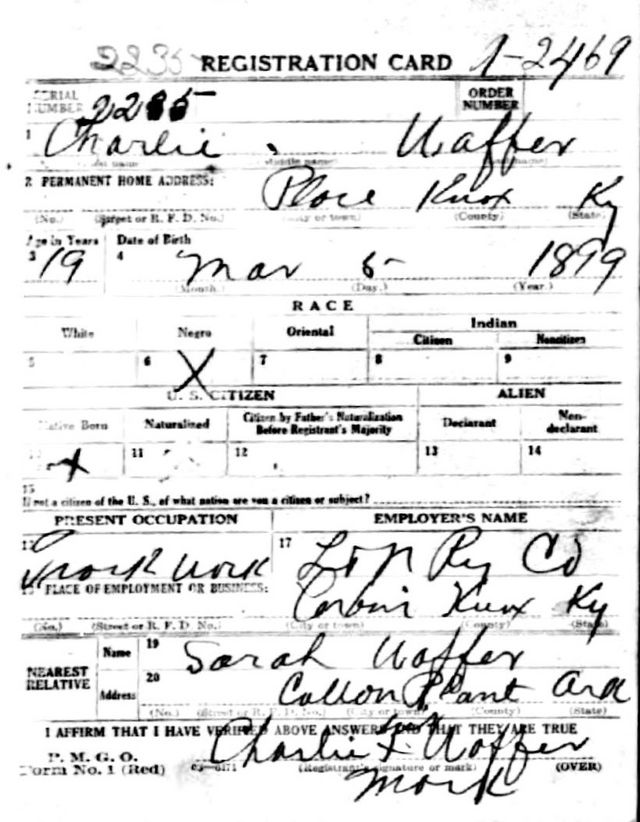 2235 REGISTRATION CARD 1-2469
SERIAL NUMBER 2235 ORDER NUMBER
1 Charlie . Waffer
(First name) (Middle name) (Last name)
2 PERMANENT HOME ADDRESS: Place Knox Ky
(No.) (Street or R. F. D. No.) (City or town) (County) (State)
Age in Years Date of Birth
3 19 4 Mar 5 1899
(Month.) (Day.) (Year.)
RACE
White Negro Oriental Indian
Citizen Noncitizen
5 6 X 7 8 9
U. S. CITIZEN ALIEN
Native Born Naturalized Citizen by Father's Naturalization Before Registrant's Majority Declarant Non-declarant
10 X 11 12 13 14
15
If not a citizen of the U. S., of what nation are you a citizen or subject?
PRESENT OCCUPATION EMPLOYER'S NAME
work 17 L & N Ry Co
PLACE OF EMPLOYMENT OR BUSINESS: Corbin Knox Ky
(No.) (Street or R. F. D. No.) (City or town) (County) (State)
NEAREST RELATIVE Name 19 Sarah Waffer
Address 20 Cotton Plant Ark
(No.) (Street or R. F. D. No.) (City or town) (County) (State)
I AFFIRM THAT I HAVE VERIFIED ABOVE ANSWERS AND THAT THEY ARE TRUE
P. M. G. O.
Form No. 1 (Red) 03-6171 Charlie X Waffer
(Registrant's signature or mark) (OVER)
mark